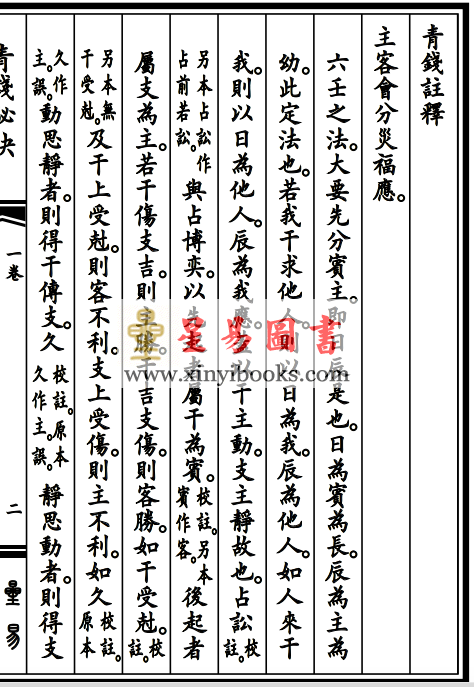 青錢註釋
主客會分災福應。
六壬之法。大要先分賓主。即日辰是也。日為賓為長。辰為主為
幼。此定法也。若我干求他人。則以日為我。辰為他人。如人來干
我。則以日為他人。辰為我應。蓋以干主動。支主靜故也。占訟校註。
另本占訟作占前若訟。與占博奕。以先起者屬干為賓。校註。另本賓作客。後起者
屬支為主。若干傷支吉。則主勝。干吉支傷。則客勝。如干受尅。校註。
另本無干受尅。及干上受尅。則客不利。支上受傷。則主不利。如久校註。原本
久作主。誤。動思靜者。則得干傳支。久校註。原本久作主。誤。靜思動者。則得支
青錢
一卷
二
星易
星易圖書
www.xinyibooks.com